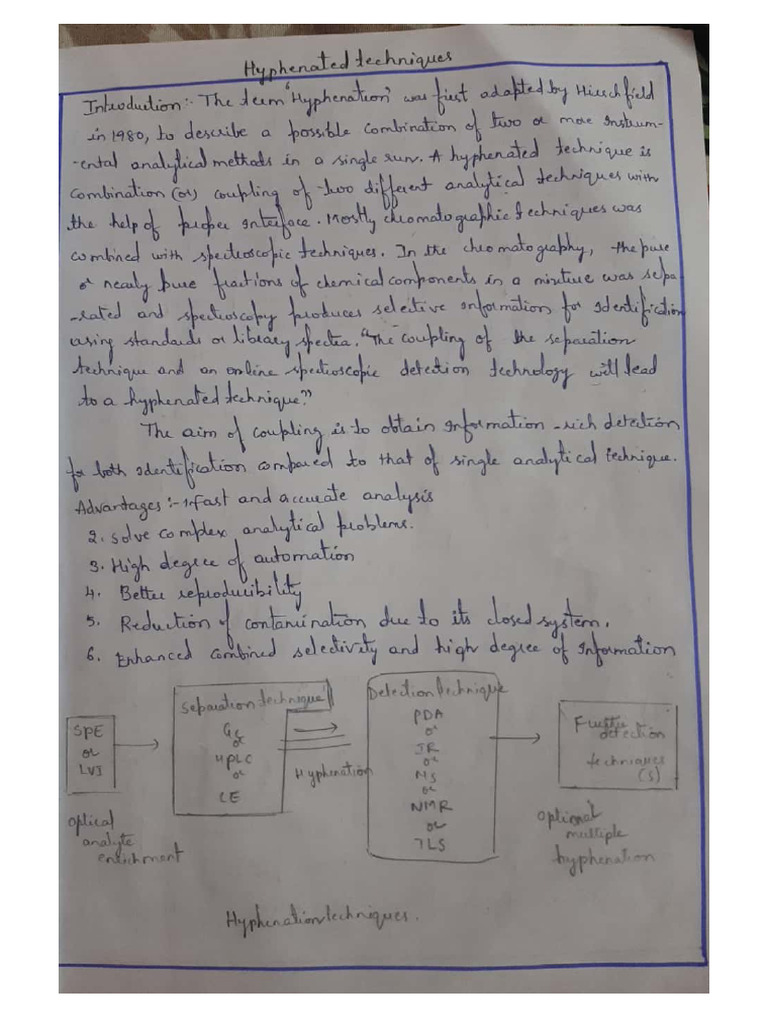 Hyphenated techniques
Introduction:- The term 'Hyphenation' was first adapted by Hirschfield
in 1980, to describe a possible combination of two or more Instrum-
-ental analytical methods in a single run. A hyphenated technique is
combination (or) coupling of two different analytical techniques with
the help of proper interface. Mostly chromatographic techniques was
combined with spectroscopic techniques. In the chromatography, the pure
or nearly pure fractions of chemical components in a mixture was sepa
-rated and spectroscopy produces selective information for Identifiction
using standards or library spectra. "The coupling of the separation
technique and an online spectroscopic detection technology will lead
to a hyphenated technique."
The aim of coupling is to obtain Information -rich detection
for both Identification compared to that of single analytical technique.
Advantages :- 1 Fast and accurate analysis
2. Solve complex analytical problems.
3. High degree of automation
4. Better reproducibility
5. Reduction of contamination due to its closed system.
6. Enhanced combined selectivity and high degree of Information
SPE
or
LVI
Optical
analyte
enrichment
Separation technique
GC
or
HPLC
or
CE
Hyphenation
Detection technique
PDA
or
IR
or
MS
or
NMR
or
TLS
detection
techniques
(s)
Optional
multiple
hyphenation
Hyphenation techniques.